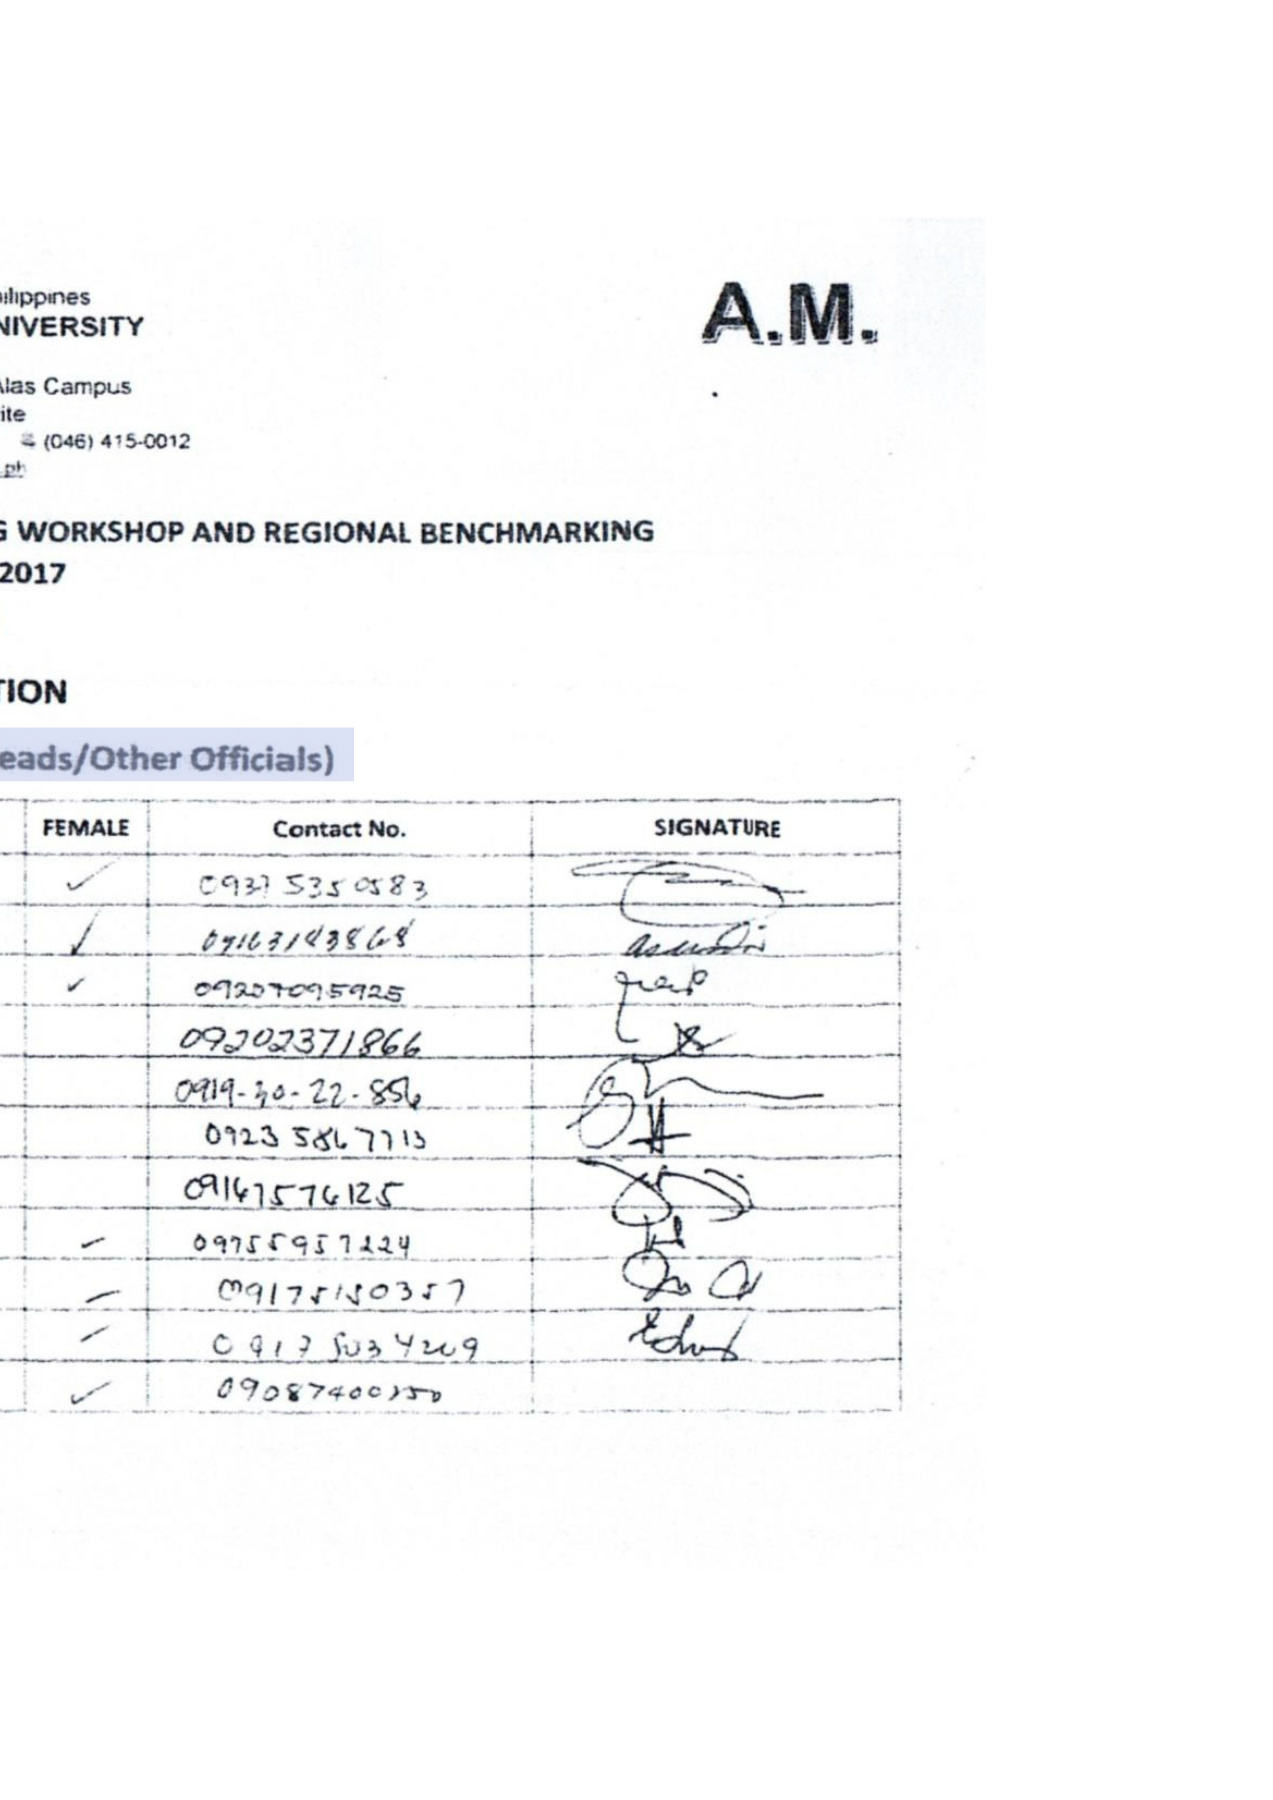 ilippines
A.M.
NIVERSITY
Alas Campus
ite
(046) 415-0012
.ph
G WORKSHOP AND REGIONAL BENCHMARKING
2017
TION
eads/Other Officials)
FEMALE Contact No. SIGNATURE
✓ 0937 5350583
✓ 09163143868
✓ 09207095925
09202371866
0919-30-22-856
0923 5867713
09167576125
09755957224
09175150357
0917 5034209
✓